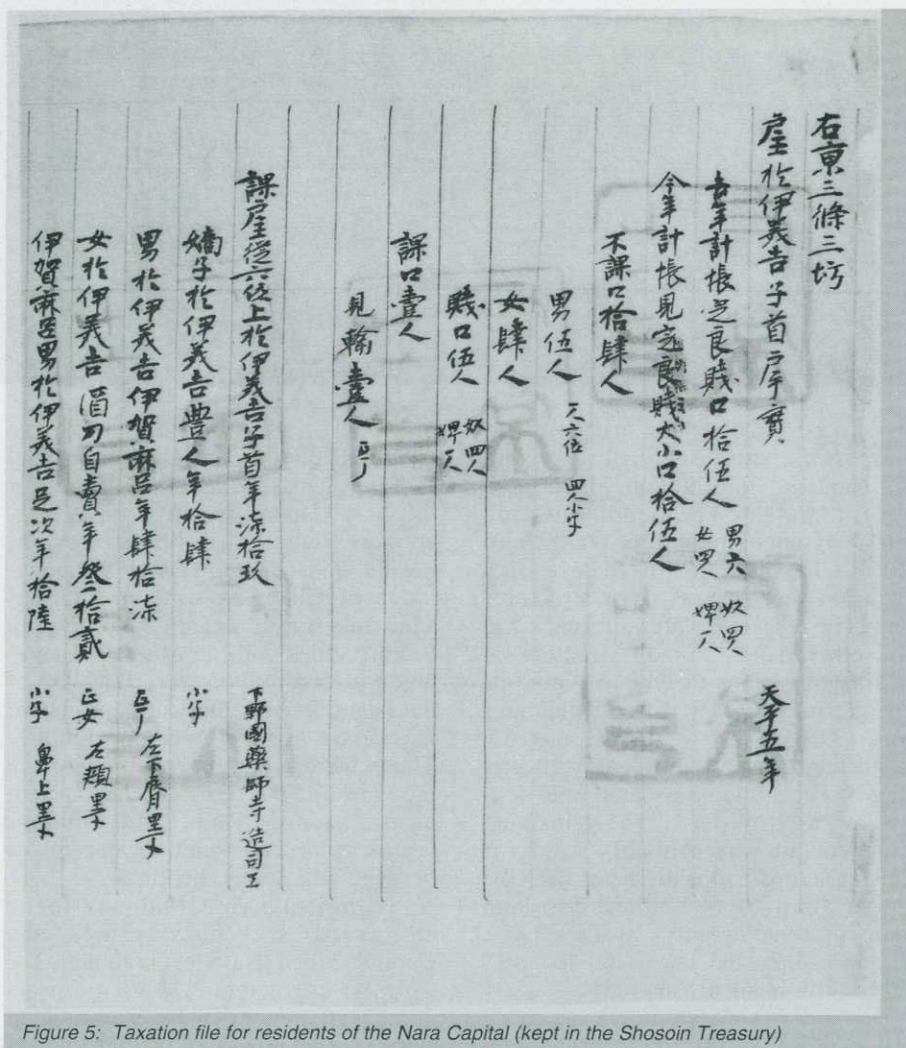 右京三條三坊
戸主於伊美吉子首戸實 天平五年
去年計帳定良賤口拾伍人 男六 女四人 奴四人 婢一人
今年計帳見定良賤大小口拾伍人
不課口拾肆人
男伍人 一人六位 四人小子
女肆人
賤口伍人 奴四人 婢一人
課口壹人
見輸壹人 正丁
課戸主從六位上於伊美吉子首年漆拾玖 下野國藥師寺造司工
嫡子於伊美吉豐人年拾肆 小子
男於伊美吉伊賀麻呂年肆拾漆 正丁 左下脣黑子
女於伊美吉酒刀自賣年參拾貳 正女 左頰黑子
伊賀麻呂男於伊美吉足次年拾陸 小子 鼻上黑子
Figure 5: Taxation file for residents of the Nara Capital (kept in the Shosoin Treasury)